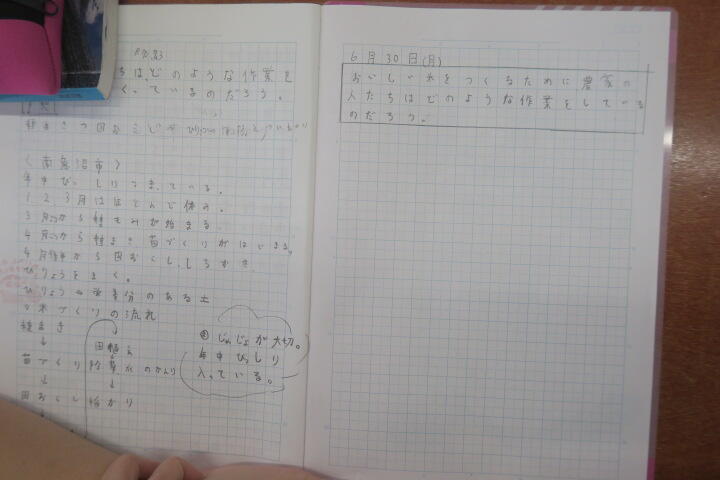 P82.83
ちは、どのような作業を
く、ているのだろう。
〈南魚沼市〉
年中びっしりつまっている。
1 2 3月はほとんど休み。
3月ごろから種もみが始まる
4月ごろから種まき 苗づくりがはじまる。
4月後半から田おこし、しろかき
ひりょうをまく。
ひりょう⇒栄養分のある土
米づくりの流れ
種まき
↓
苗づくり
↓
田おこし
↓
田植え
↓
水のかんり
↓
稲かり
じゅんじょが大切。
年中びっしり
入っている。
6月30日(月)
おいしい米をつくるために農家の
人たちはどのような作業をしている
のだろう。